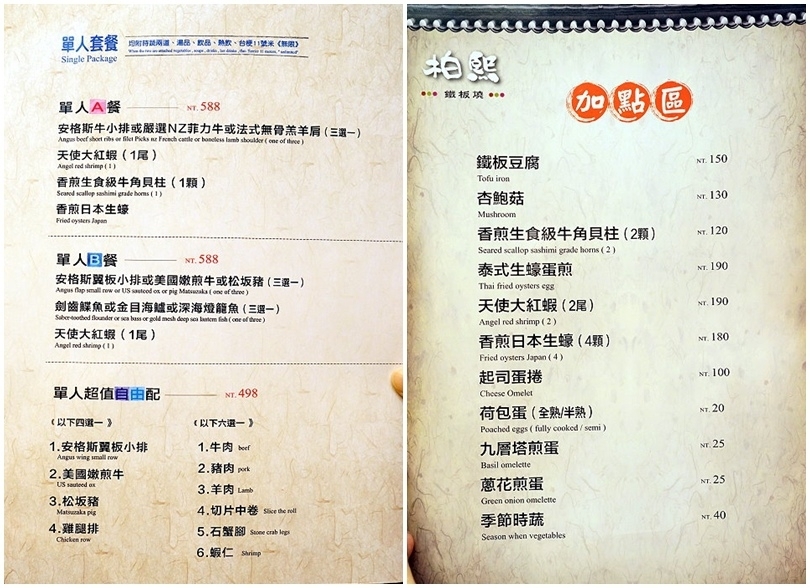 單人套餐
Single Package
均附時蔬兩道、湯品、飲品、熱飲、台梗11號米《無限》
單人A餐 NT. 588
安格斯牛小排或嚴選NZ菲力牛或法式無骨羔羊肩(三選一)
Angus beef short ribs or filet Picks nz French cattle or boneless lamb shoulder ( one of three )
天使大紅蝦(1尾)
Angel red shrimp ( 1 )
香煎生食級牛角貝柱(1顆)
Seared scallop sashimi grade horns ( 1 )
香煎日本生蠔
Fried oysters Japan
單人B餐 NT. 588
安格斯翼板小排或美國嫩煎牛或松坂豬(三選一)
Angus flap small row or US sauteed ox or pig Matsuzaka ( one of three )
劍齒鰈魚或金目海鱸或深海燈籠魚(三選一)
Saber-toothed flounder or sea bass or gold mesh deep sea lantern fish ( one of three )
天使大紅蝦(1尾)
Angel red shrimp ( 1 )
單人超值自由配 NT. 498
《以下四選一》
1.安格斯翼板小排
Angus wing small row
2.美國嫩煎牛
US sauteed ox
3.松坂豬
Matsuzaka pig
4.雞腿排
Chicken row
《以下六選一》
1.牛肉 beef
2.豬肉 pork
3.羊肉 Lamb
4.切片中卷 Slice the roll
5.石蟹腳 Stone crab legs
6.蝦仁 Shrimp
柏熙
鐵板燒
加點區
鐵板豆腐 NT. 150
Tofu iron
杏鮑菇 NT. 130
Mushroom
香煎生食級牛角貝柱(2顆) NT. 120
Seared scallop sashimi grade horns ( 2 )
泰式生蠔蛋煎 NT. 190
Thai fried oysters egg
天使大紅蝦(2尾) NT. 190
Angel red shrimp ( 2 )
香煎日本生蠔(4顆) NT. 180
Fried oysters Japan ( 4 )
起司蛋捲 NT. 100
Cheese Omelet
荷包蛋(全熟/半熟) NT. 20
Poached eggs ( fully cooked / semi )
九層塔煎蛋 NT. 25
Basil omelette
蔥花煎蛋 NT. 25
Green onion omelette
季節時蔬 NT. 40
Season when vegetables